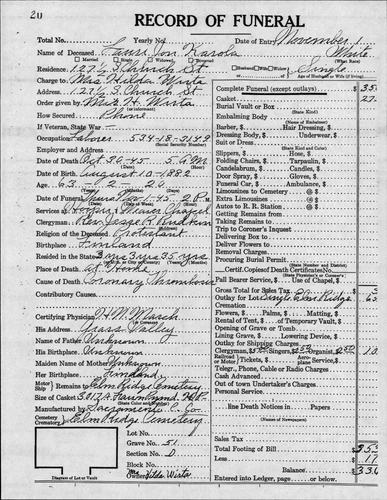 20
RECORD OF FUNERAL
Total No. Yearly No. Date of Entry November 1
Name of Deceased Karola White
Married Single Widowed Divorced (What Race)
Residence 127½ S. Church St Single
Husband Wife Widow of Age of Husband or Wife (if living)
Charge to Mrs. Hilda Wirta
Address 127½ S. Church St
Order given by Mrs. H. Wirta
(or informant)
How Secured Phone
If Veteran, State War
Occupation Laborer 534-18-3149
Employer and Address
Date of Death Oct 30-45 5 a M
Date of Birth August 10-1882
Age 63-2-20
Date of Funeral Thurs Nov 1-45 2 P. M.
Services at Weaver Chapel
Clergyman Rev. Jesse R. Rudkin
Religion of the Deceased Protestant
Birthplace Finland
Resided in the State 3 yrs 3 yrs 35 yrs
Place of Death At Home
Cause of Death Coronary Thrombosis
Contributory Causes
Certifying Physician H. M. March
His Address Grass Valley
Name of Father Unknown
His Birthplace Unknown
Maiden Name of Mother Unknown
Her Birthplace Finland
Remains to Elm Ridge Cemetery
Size of Casket
Manufactured by Sacramento C. Co.
Cemetery Crematory Elm Ridge Cemetery
Lot No.
Grave 51
Section No. D
Block No.
Owner Hilda Wirta
Diagram of Lot or Vault
Complete Funeral (except outlays) $ 35
Casket 27
Burial Vault or Box
(State Kind)
Embalming Body
(Name of Embalmer)
Barber, $ Hair Dressing, $
Dressing Body, $ Underwear, $
Suit or Dress
(State Kind and Color)
Slippers, $ Hose, $
Folding Chairs, $ Tarpaulin, $
Candelabrum, $ Candles, $
Door Spray, $ Gloves, $
Funeral Car, $ Ambulance, $
Limousines to Cemetery @ $
Extra Limousines @ $
Autos to R. R. Station @ $
Getting Remains from
Taking Remains to
Trip to Coroner's Inquest
Delivering Box to
Deliver Flowers to
Removal Charges
Procuring Burial Permit
(State Number and District)
Certif. Copies of Death Certificate No.
(State Physician's or Coroner's)
Pall Bearer Service, $ Use of Chapel, $
Gross Total for Sales Tax $ 35
Outlay for Lot Single Elm Ridge 6
Cremation
Flowers, $ Palms, $ Matting, $
Rental of Tent, $ of Temporary Vault, $
Opening of Grave or Tomb
Lining Grave, $ Lowering Device, $
Outlay for Shipping Charges
Clergyman, $ Singers, $ Organist, $ 10
Railroad Tickets, $ Aero or Motor
Telegr., Phone, Cable or Radio Charges
Cash Advanced
Out of town Undertaker's Charges
Personal Service
line Death Notices in Papers
(Names of Newspapers)
Sales Tax
Total Footing of Bill $
Less 17
Balance $
Entered into Ledger, page or below.